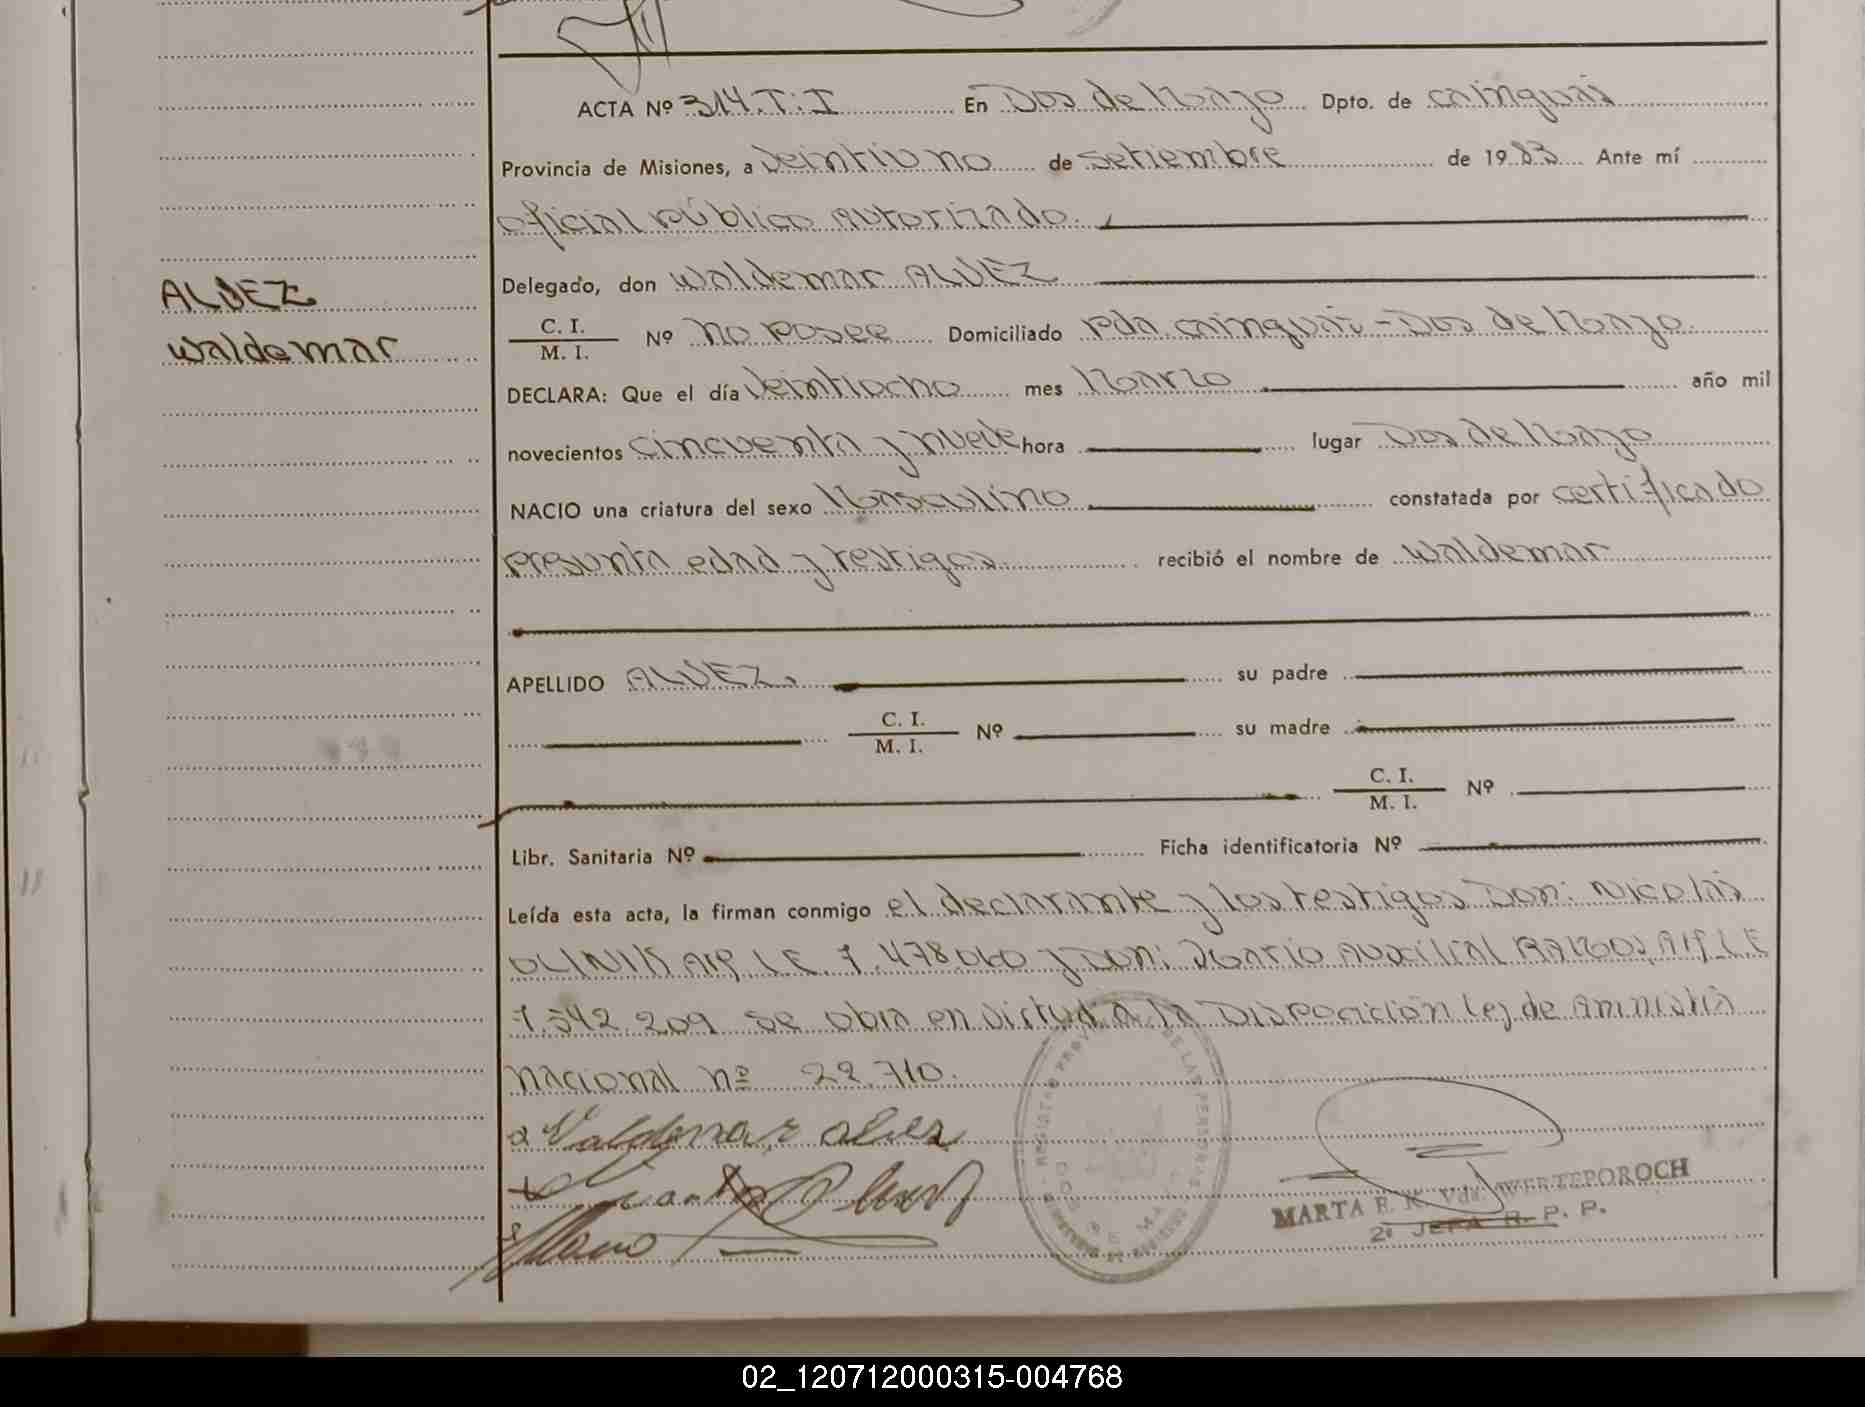 ACTA Nº 314.T:I En Dos de Mayo Dpto. de cainguás
Provincia de Misiones, a Veintiuno de setiembre de 1983 Ante mí
oficial público autorizado.
Delegado, don Waldemar ALVEZ
ALVEZ
C. I.
M. I. Nº No posee Domiciliado Pda. cainguás - Dos de Mayo.
Waldemar
DECLARA: Que el día Veintiocho mes Marzo año mil
novecientos cincuenta y nueve hora lugar Dos de Mayo
NACIO una criatura del sexo Masculino constatada por certificado
presunta edad y testigos recibió el nombre de Waldemar
APELLIDO ALVEZ. su padre
C. I.
M. I. Nº su madre
C. I.
M. I. Nº
Libr. Sanitaria Nº Ficha identificatoria Nº
Leída esta acta, la firman conmigo el declarante y los testigos Don: Nicolás
OLINIK Arg. L.E. 7.478.060 y Don: Mario Auxilial RAMOS, Arg. L.E
7.542.209 se obra en virtud a la Disposición Ley de Aminístiá
Nacional nº 22.710.
Valdemar alvez
MARTA E. K. Vda. WERTEPOROCH
2º JEFA R. P. P.
02_120712000315-004768